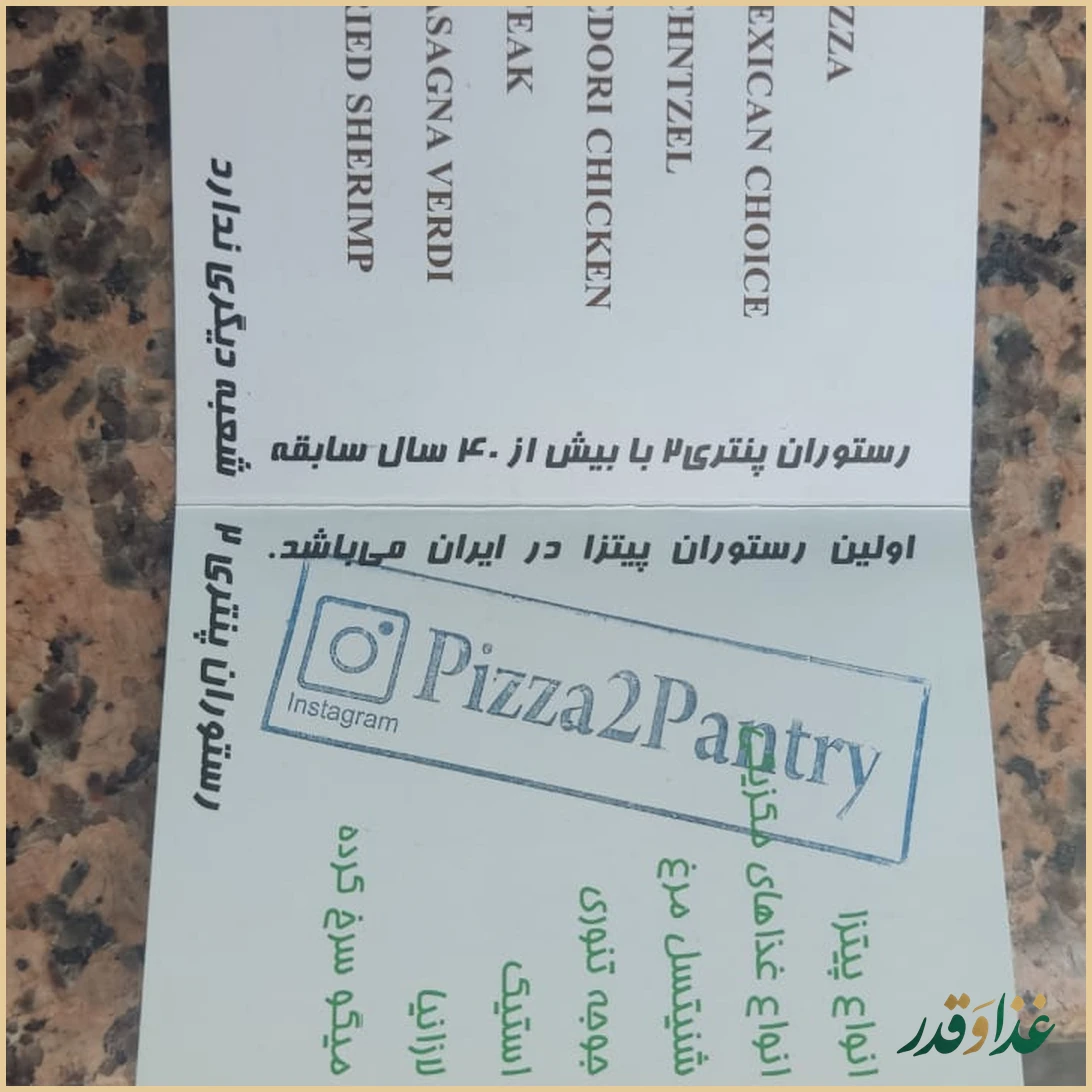 ZZA
EXICAN CHOICE
CHNTZEL
EDORI CHICKEN
EAK
ASAGNA VERDI
RIED SHERIMP
رستوران پنتری۲ با بیش از ۴۰ سال سابقه
اولین رستوران پیتزا در ایران می‌باشد.
رستوران پنتری ۲ شعبه دیگری ندارد
Instagram
Pizza2Pantry
انواع پیتزا
انواع غذاهای مکزیکی
شنیتسل مرغ
جوجه تنوری
استیک
لازانیا
میگو سرخ کرده
غذا و قدر